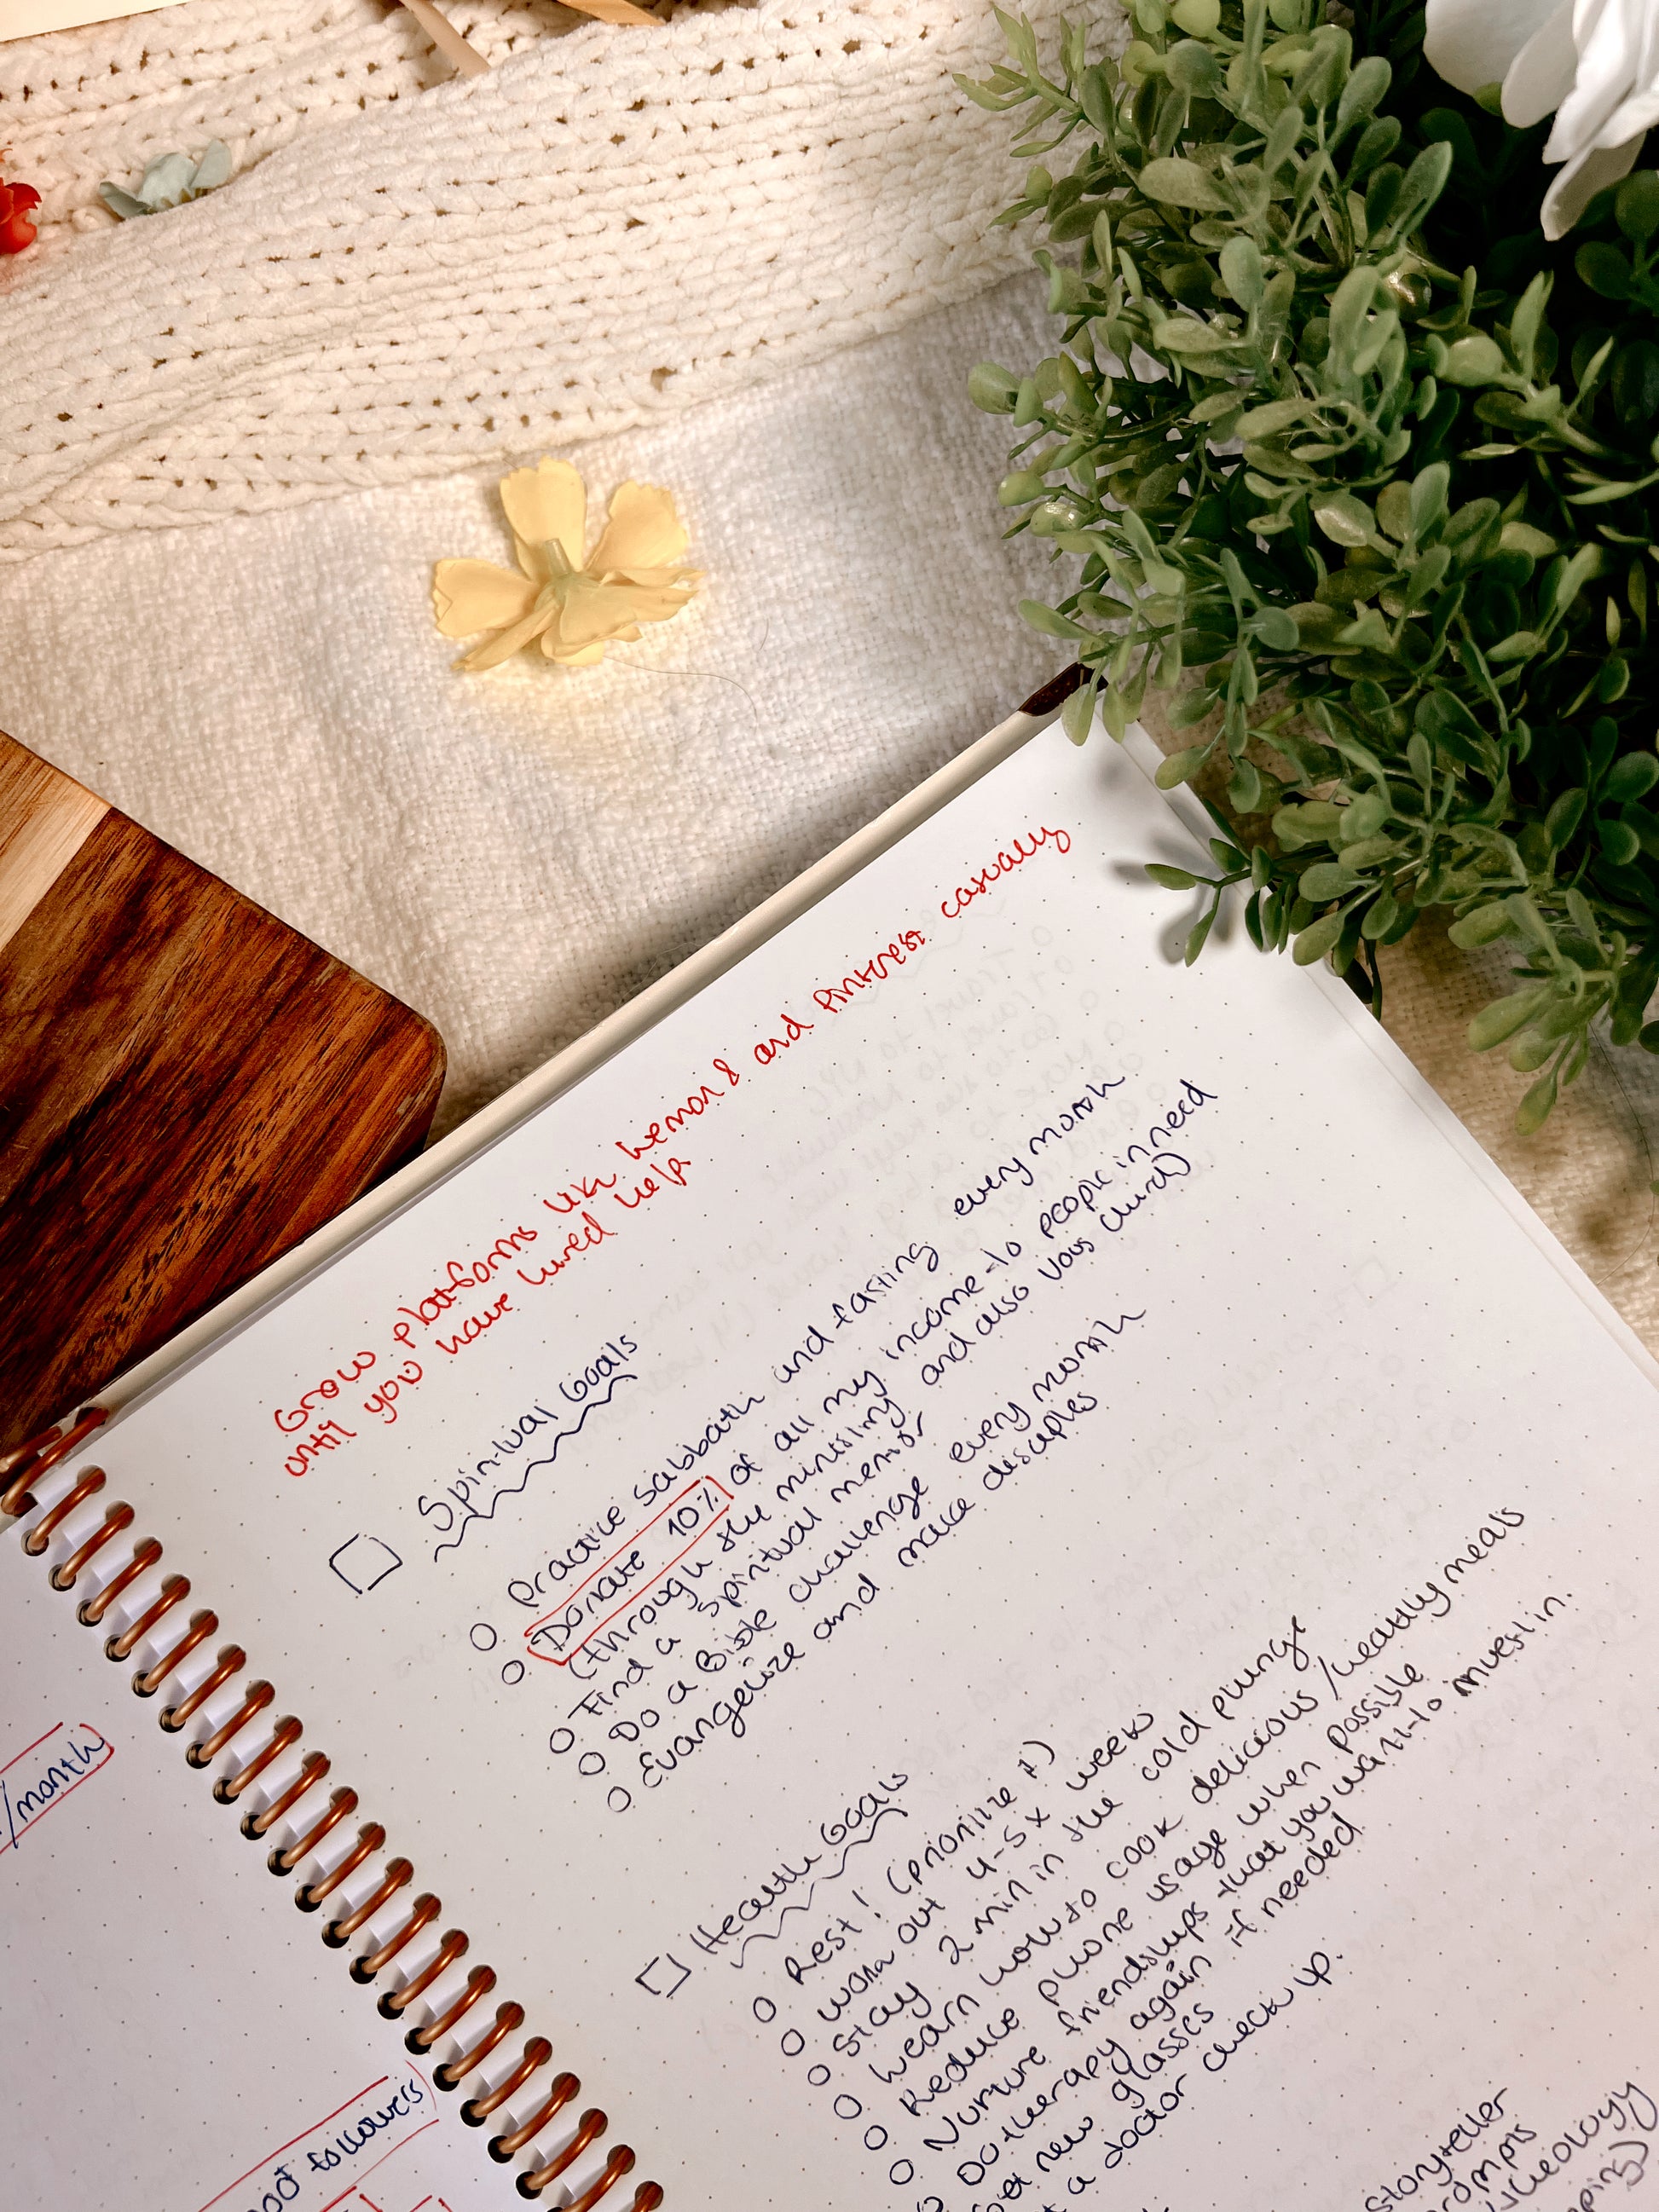 Grow platforms like lemon8 and Pinterest casually
until you have hired help
Spiritual Goals
Practice sabbath and fasting every month
Donate 10% of all my income to people in need
(through the ministry and also Vous Church)
Find a spiritual mentor
Do a Bible challenge every month
Evangelize and make disciples
Health Goals
Rest! (prioritize it)
Work out 4-5x week
Stay 2 min in the cold plunge
Learn how to cook delicious/healthy meals
Reduce phone usage when possible
Nurture friendships that you want to invest in.
Do therapy again if needed
Get new glasses
a doctor check up.
storyteller
/month
followers